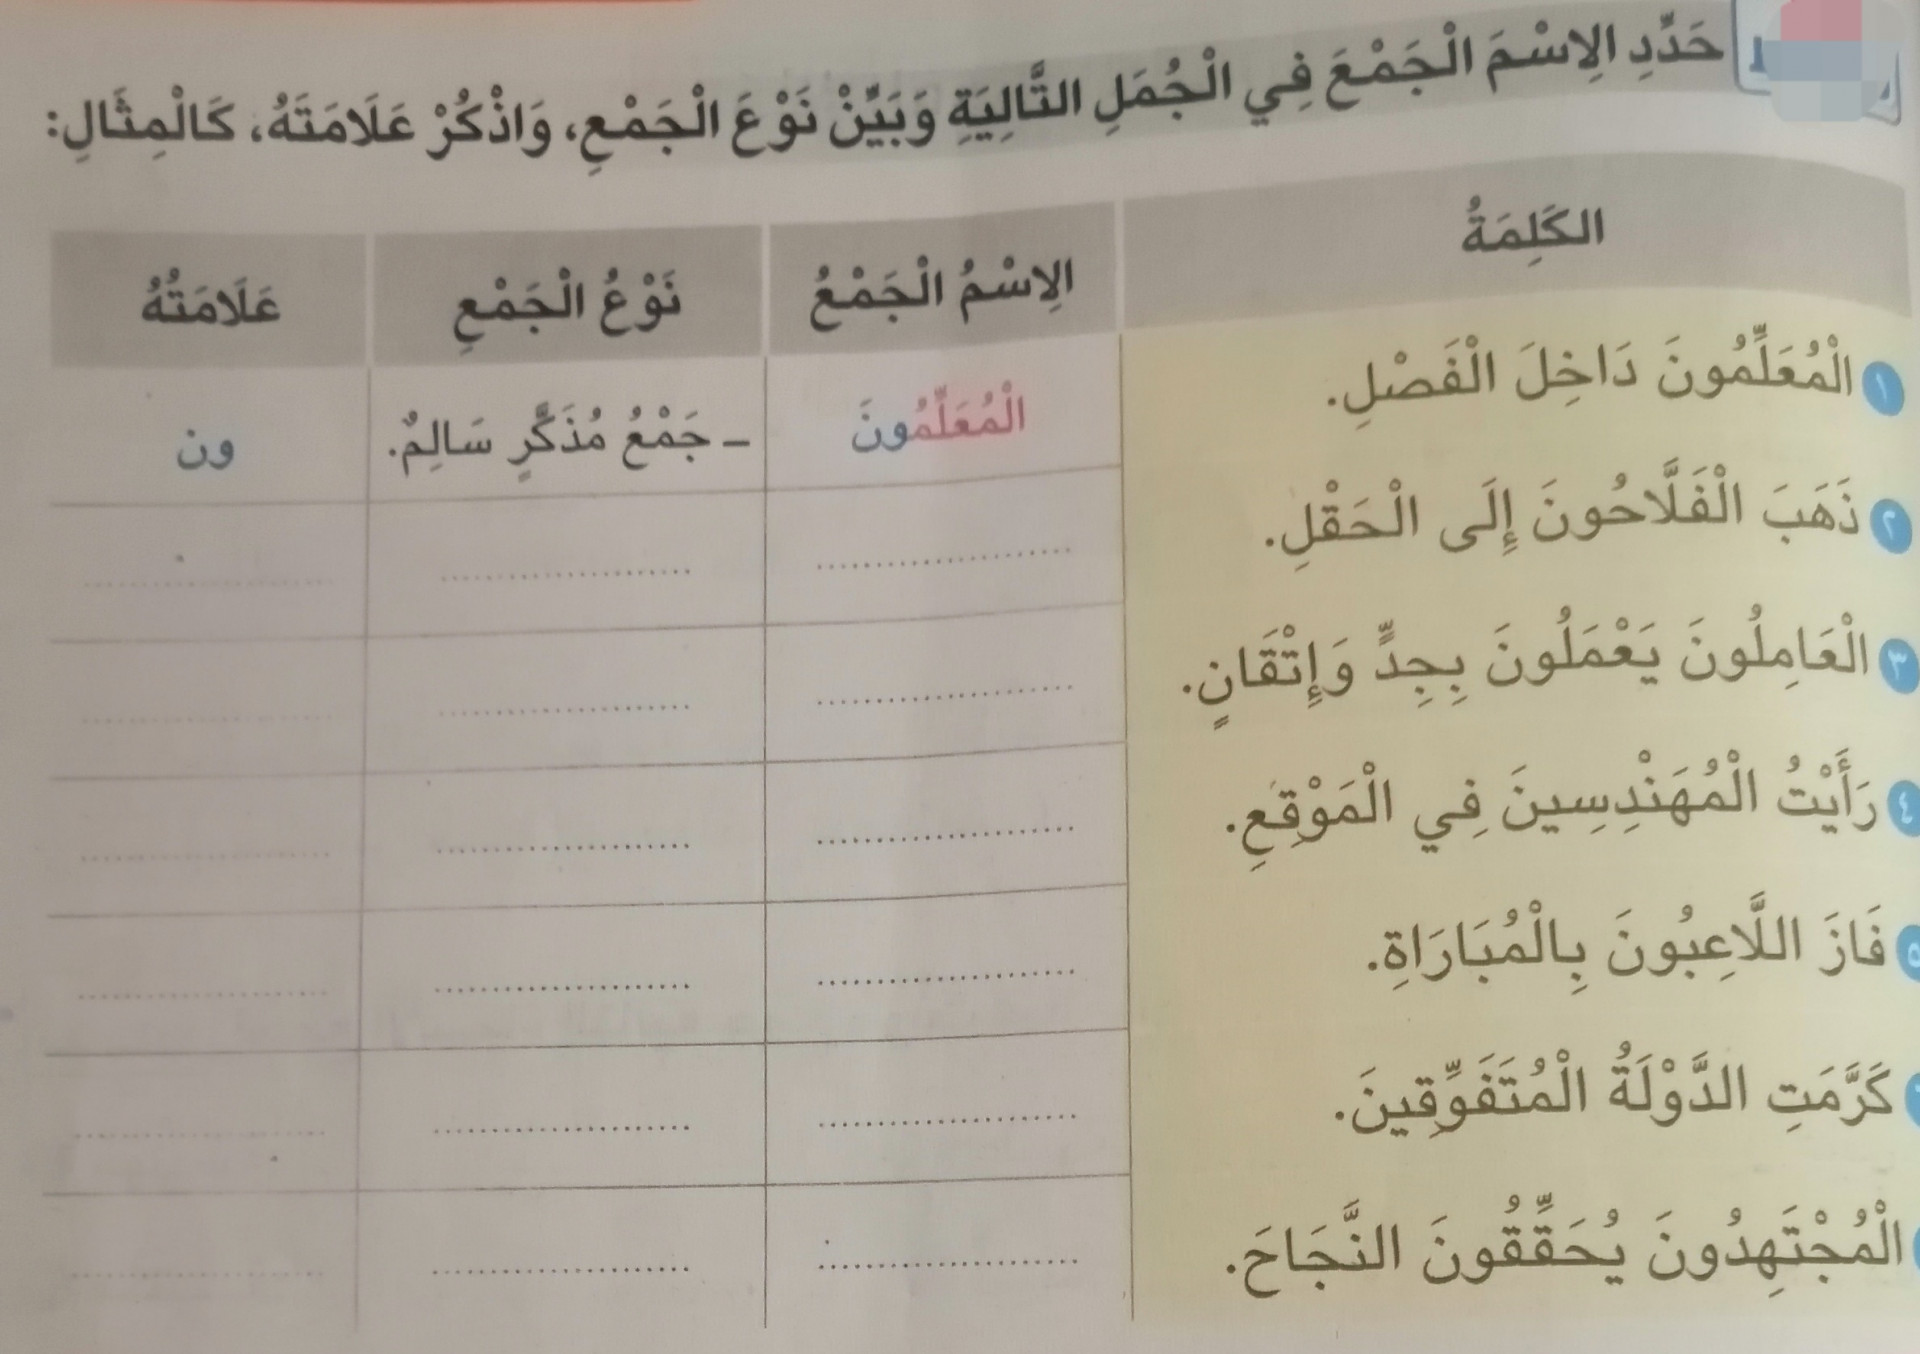 حَدِّدِ الِاسْمَ الْجَمْعَ فِي الْجُمَلِ التَّالِيَةِ وَبَيِّنْ نَوْعَ الْجَمْعِ، وَاذْكُرْ عَلَامَتَهُ، كَالْمِثَالِ:
الكَلِمَةُ الِاسْمُ الْجَمْعُ نَوْعُ الْجَمْعِ عَلَامَتُهُ
١ الْمُعَلِّمُونَ دَاخِلَ الْفَصْلِ. الْمُعَلِّمُونَ – جَمْعُ مُذَكَّرٍ سَالِمٌ. ون
٢ ذَهَبَ الْفَلَّاحُونَ إِلَى الْحَقْلِ.
٣ الْعَامِلُونَ يَعْمَلُونَ بِجِدٍّ وَإِتْقَانٍ.
٤ رَأَيْتُ الْمُهَنْدِسِينَ فِي الْمَوْقِعِ.
٥ فَازَ اللَّاعِبُونَ بِالْمُبَارَاةِ.
كَرَّمَتِ الدَّوْلَةُ الْمُتَفَوِّقِينَ.
الْمُجْتَهِدُونَ يُحَقِّقُونَ النَّجَاحَ.